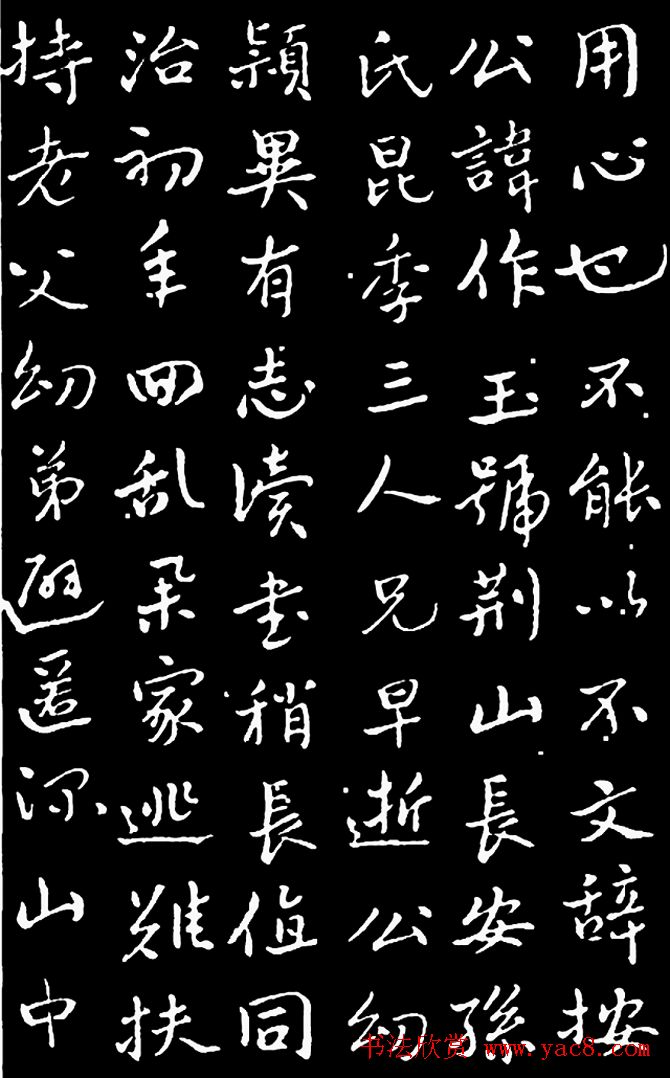 用心也不能以不文辞按
公諱作玉號荆山長安孫
氏昆季三人兄早逝公幼
穎異有志讀书稍長值同
治初年回乱举家逃難扶
持老父幼弟避匿深山中
书法欣赏 www.yac8.com